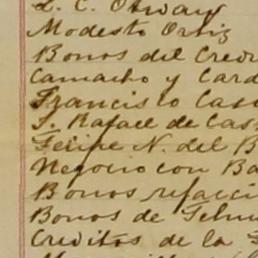 L. C. Otway
Modesto Ortiz
Bonos del Credi
Camacho y Card
Francisco Cas
S. Rafael de Cas
Felipe N. del B
Negocio con Ba
Bonos refacci
Bonos de Tehu
Creditos de la